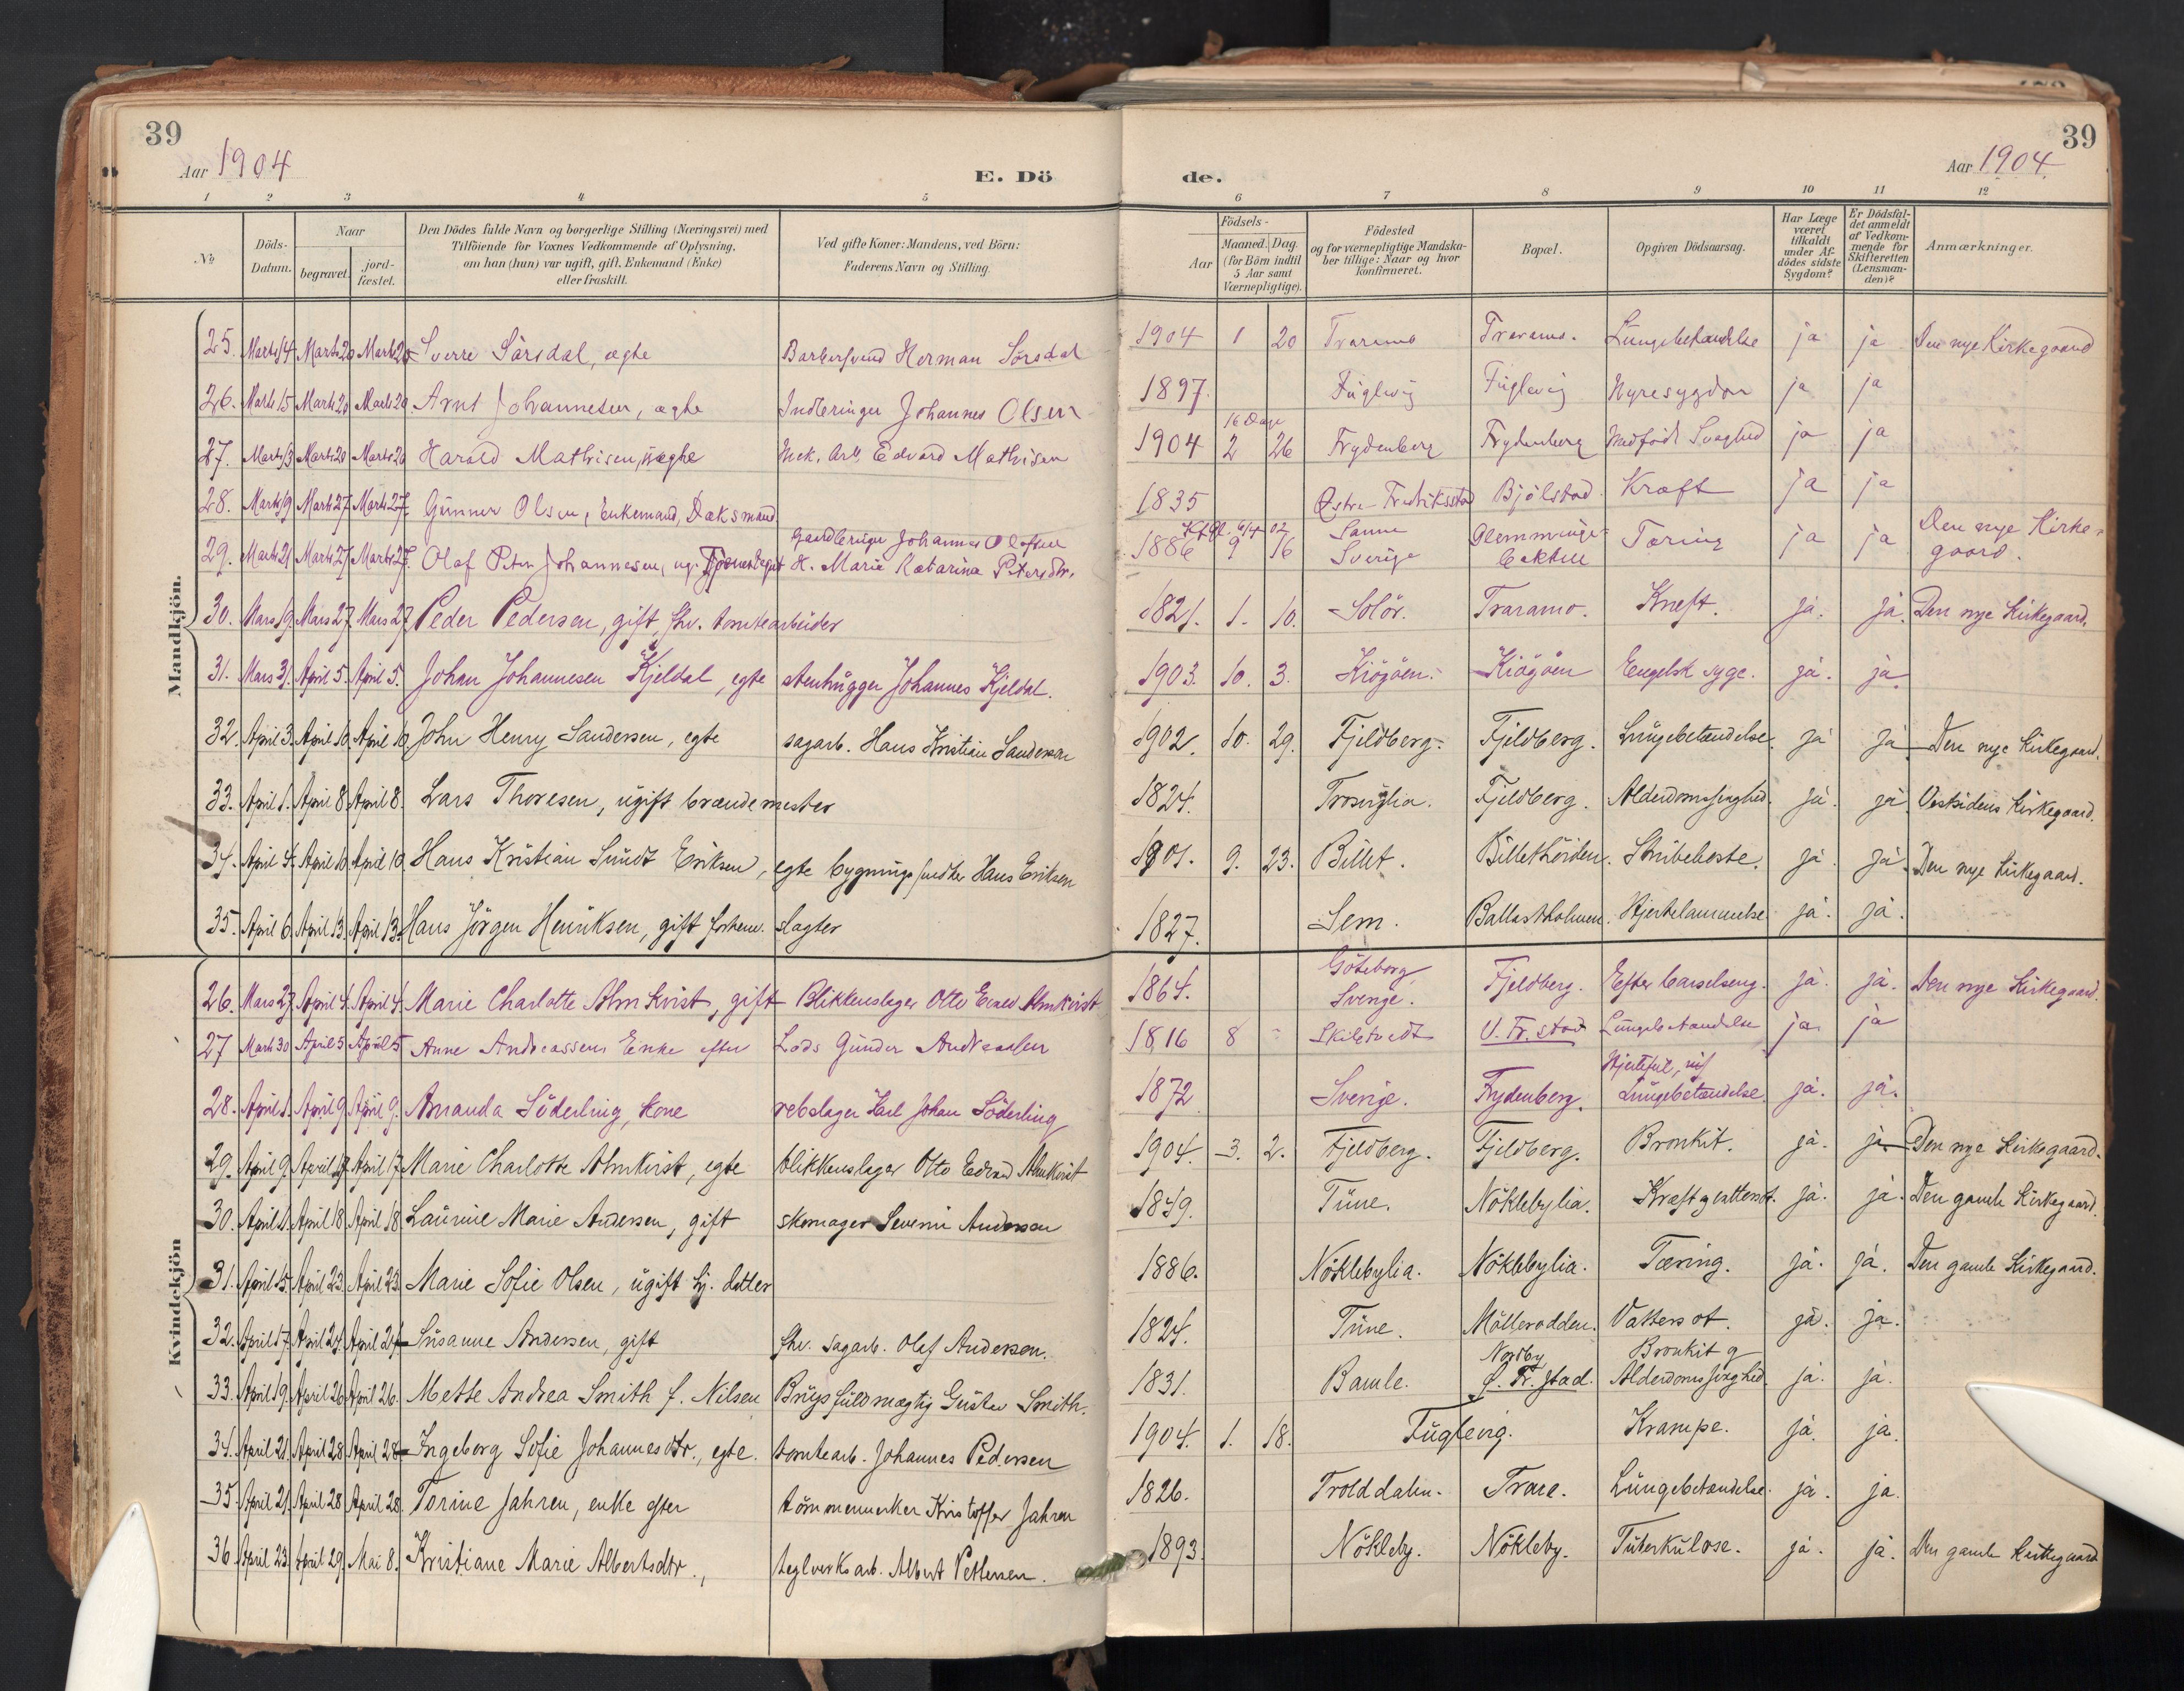 39
39
Aar 1904
E. Dö
de.
Aar 1904
1 2 3 4 5 6 7 8 9 10 11 12
No
Döds-Datum.
Naar
begravet.
jord-fæstet.
Den Dödes fulde Navn og borgerlige Stilling (Næringsvei) med
Tilföiende for Voxnes Vedkommende af Oplysning,
om han (hun) var ugift, gift, Enkemand (Enke)
eller fraskilt.
Ved gifte Koner: Mandens, ved Börn:
Faderens Navn og Stilling.
Födsels-
Aar
Maaned. Dag.
(for Börn indtil
5 Aar samt
Værnepligtige).
Födested
og for værnepligtige Mandska-
ber tillige: Naar og hvor
konfirmeret.
Bopæl.
Opgiven Dödsaarsag.
Har Læge
været
tilkaldt
under Af-
dödes sidste
Sygdom?
Er Dödsfal-
det anmeldt
af Vedkom-
mende for
Skifteretten
(Lensman-
den)?
Anmærkninger.
Mandkjön.
25. Marts 14 Marts 20 Marts 20 Sverre Sörsdal, ægte Barbersvend Herman Sörsdal 1904 1 20 Traramo Traramo. Lungebetændelse ja ja Den nye Kirkegaard
26. Marts 15 Marts 20 Marts 20 Arnt Johannesen, ægte Inderinger Johannes Olsen 1897. Fuglevig Fuglevig Nyresygdom ja ja
16 Dage
27. Marts 13 Marts 20 Marts 20 Harald Mathisen, uægte Mek. Arb. Edvard Mathisen 1904 2 26 Frydenberg Frydenberg Medfödt Svaghed ja ja
28. Marts 19 Marts 27 Marts 27. Gunner Olsen, Enkemand, Dæksmand 1835 Østre Fredriksstad Bjölstad. Kræft ja ja
29. Marts 21 Marts 27 Marts 27. Olaf Peter Johannesen, ug. Gaardbruger Johannes Olofsen H. Marie Katarina Petersdtr. 1886 9 16 Sanne Sverige Glemminge- Tæring ja ja Den nye Kirke-gaard.
30. Mars 19. Mars 27. Mars 27 Peder Pedersen, gift, fhv. tomtearbeider 1821. 1. 10. Solör. Traramo. Kræft. ja. ja. Den nye Kirkegaard.
31. Mars 31. April 5. April 5. Johan Johannesen Kjeldal, egte stenhugger Johannes Kjeldal. 1903. 10. 3. Kiögöen. Kiögöen Engelsk syge. ja. ja.
32. April 3. April 10 April 10 John Henry Sandersen, egte sagarb. Hans Kristian Sandersen 1902. 10. 29. Fjeldberg. Fjeldberg. Lungebetændelse. ja ja Den nye Kirkegaard.
33. April 1. April 8 April 8. Lars Thoresen, ugift brændemester 1824. Trosviglia. Fjeldberg. Alderdomssvaghed. ja. ja. Vestsidens Kirkegaard.
34. April 4. April 10 April 10. Hans Kristian Sundt Eriksen, egte bygnings Hans Eriksen 1901. 9. 23. Billet. Billethöiden. Strubehoste. ja. ja. Den nye Kirkegaard.
35. April 6. April 13. April 13. Hans Jörgen Henriksen, gift forhenv. slagter 1827. Sem. Ballastholmen. Hjertelammelse ja. ja.
Kvindekjön
26. Mars 27. April 4. April 4. Marie Charlotte Almkvist, gift Blikkenslager Otto Edvard Almkvist 1864. Göteborg Sverige. Fjeldberg. Efter barselseng. ja. ja. Den nye Kirkegaard.
27 Marts 30 April 5 April 5 Anne Andreassens Enke efter Lods Gunder Andreasen 1816 8 Skibstvedt V. Fr.stad Lungebetændelse ja. ja
28. April 1. April 9 April 9. Amanda Söderling, kone rebslager Karl Johan Söderling 1872 Sverige. Frydenberg. Hjertefeil, Lungebetændelse. ja. ja.
29. April 9. April 17 April 17 Marie Charlotte Almkvist, egte blikkenslager Otto Edvard Almkvist 1904. 3. 2. Fjeldberg. Fjeldberg. Bronkit. ja. ja. Den nye Kirkegaard.
30. April 11. April 18 April 18 Laurine Marie Andersen, gift skomager Severin Andersen 1849. Tune. Nöklebylia. Kræft g vattersot. ja. ja. Den gamle Kirkegaard.
31. April 15. April 23. April 23. Marie Sofie Olsen, ugift tj. datter 1886. Nöklebylia. Nöklebylia. Tæring. ja. ja. Den gamle Kirkegaard.
32. April 17. April 24. April 24 Susanne Andersen, gift fhv. sagarb. Olaf Andersen. 1824. Tune. Mölleradden. Vattersot. ja. ja.
33. April 19. April 26 April 26. Mette Andrea Smith f. Nilsen Brugsfuldmægtig Gustav Smith. 1831. Bamle. Nordby Fr.stad. Bronkit g Alderdomssvaghed. ja. ja.
34. April 21. April 28 April 28 Ingeborg Sofie Johannesdtr., egte. tomtearb. Johannes Pedersen 1904. 1. 18. Fuglevig. Krampe. ja. ja.
35. April 21. April 28 April 28 Torine Jahren, enke efter tömmermerker Kristoffer Jahren 1826. Trolddalen. Trare. Lungebetændelse. ja. ja.
36. April 23. April 29. Mai 8. Kristiane Marie Albertsdtr., teglverksarb. Albert Pettersen. 1893. Nökleby. Nökleby. Tuberkulose. ja. ja. Den gamle Kirkegaard